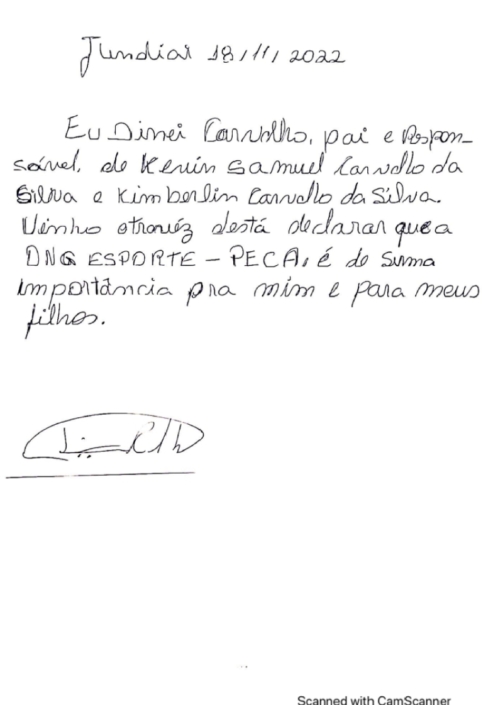 Jundiai 18/11/2022
Eu Dinei Carvalho, pai e Respon-
sável, de Kevin Samuel Carvalho da
Silva e Kimberlin Carvalho da Silva.
Venho atravéz destá declarar que a
ONG ESPORTE - PECA, é de suma
importância pra mim e para meus
filhos.
Scanned with CamScanner